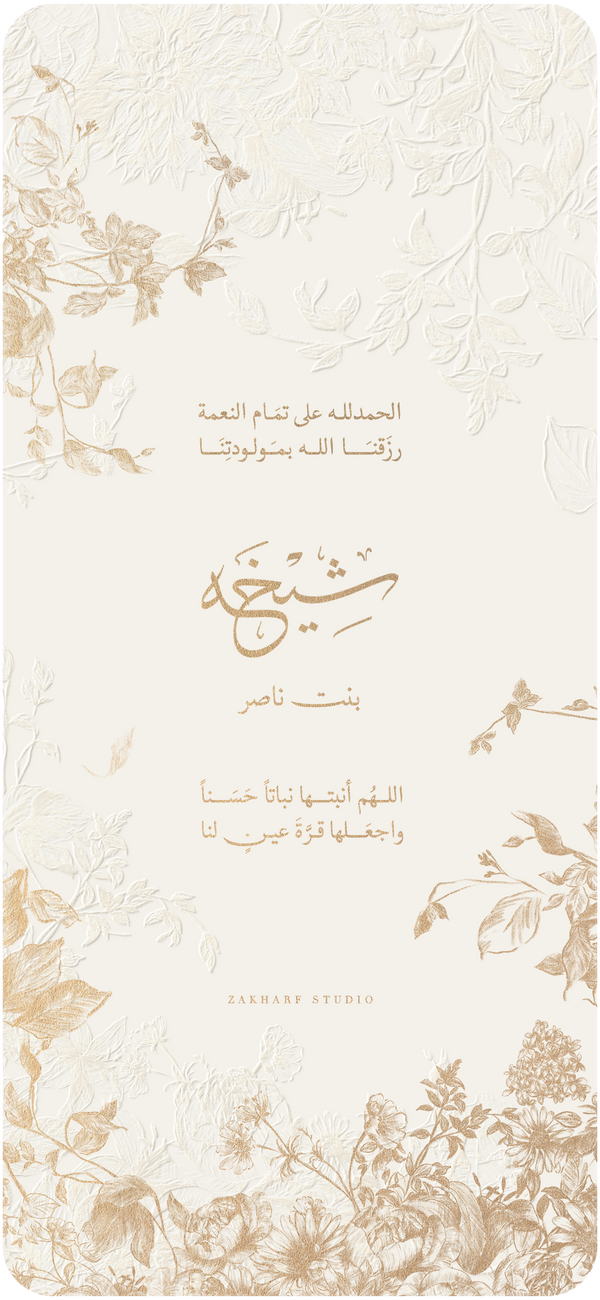 الحمدلله على تمَام النعمة
رزَقنَــا اللـه بمَـولـودتِنَــا
شِيْخَه
بنت ناصر
اللـهُم أنبتـها نباتاً حَسَـناً
واجعَـلها قرَّةَ عينٍ لنا
ZAKHARF STUDIO